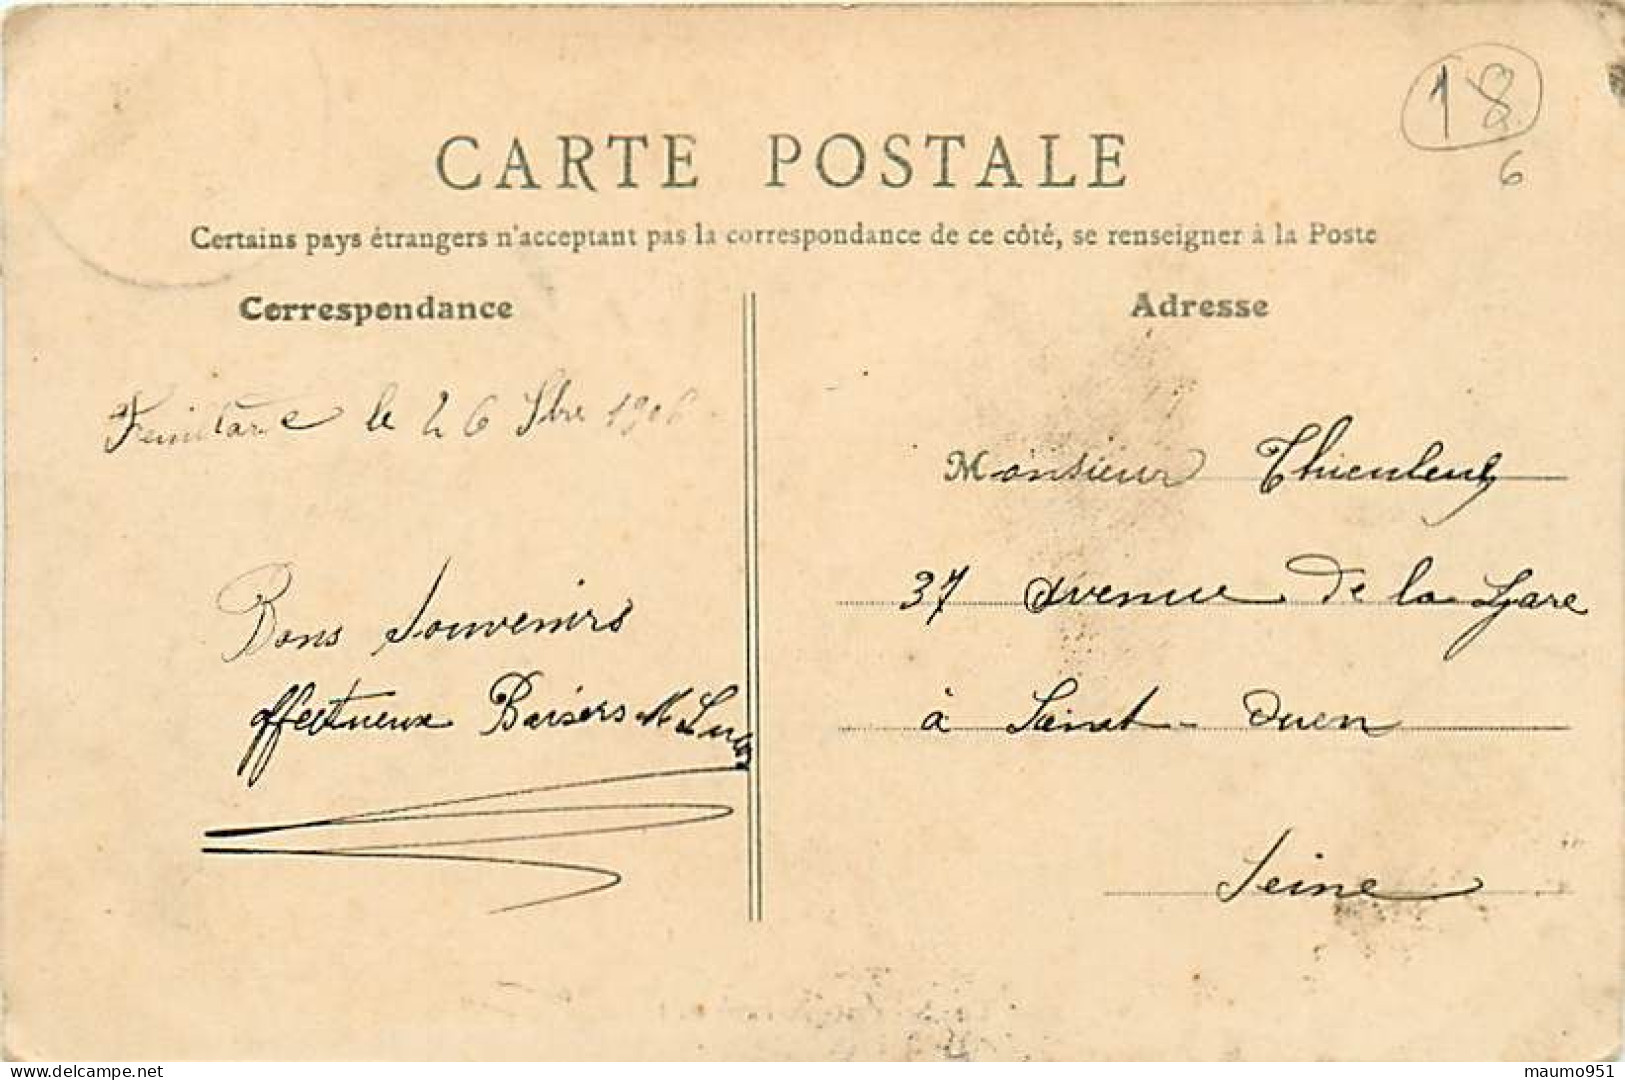 18
6
CARTE POSTALE
Certains pays étrangers n'acceptant pas la correspondance de ce côté, se renseigner à la Poste
Correspondance
le 26 1906
Bons Souvenirs
affectueux Baisers
Adresse
Monsieur
37 avenue de la Gare
à Saint-Ouen
Seine
delcampe.net
maumo951